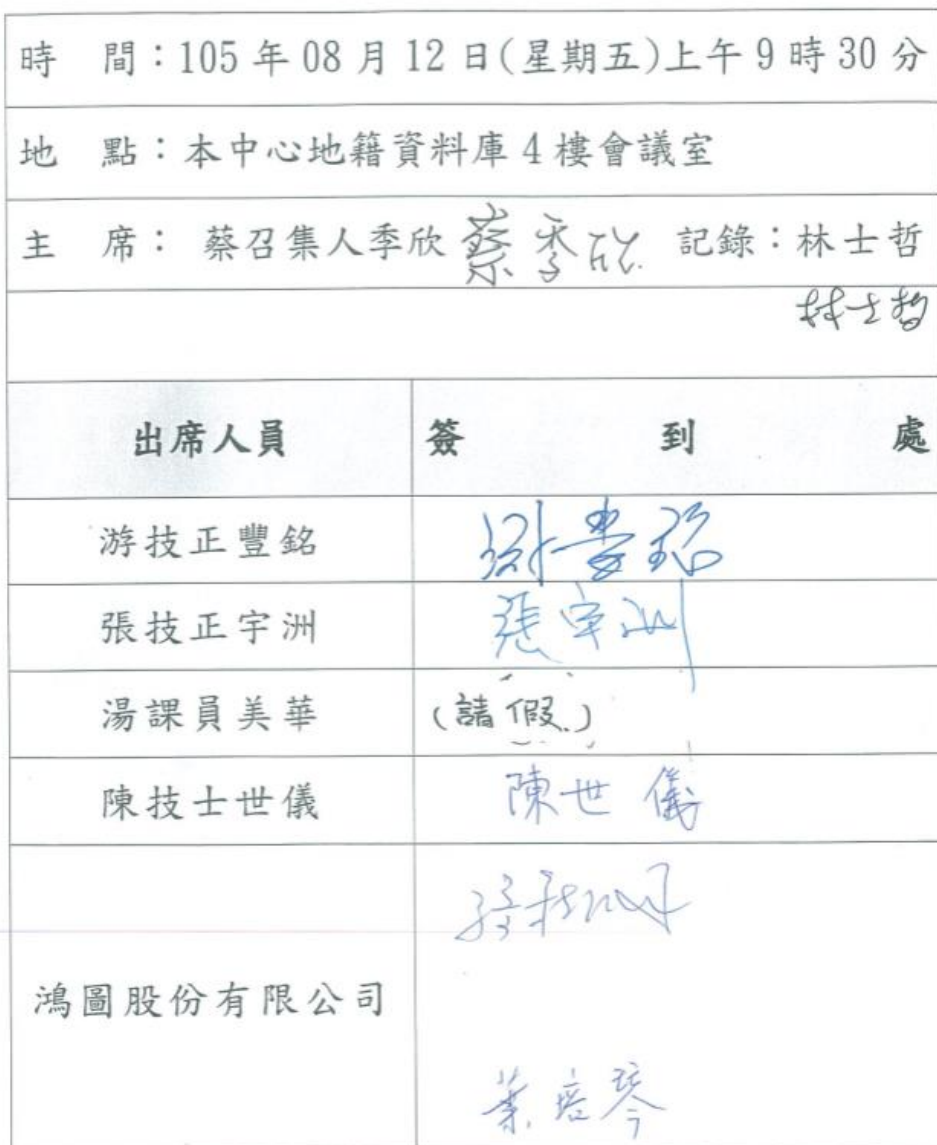 時 間：105 年 08 月 12 日(星期五)上午 9 時 30 分
地 點：本中心地籍資料庫 4 樓會議室
主 席： 蔡召集人季欣 蔡季欣 記錄：林士哲
林士哲
出席人員 簽 到 處
游技正豐銘 游豐銘
張技正宇洲 張宇洲
湯課員美華 (請假)
陳技士世儀 陳世儀
鴻圖股份有限公司
葉培琴